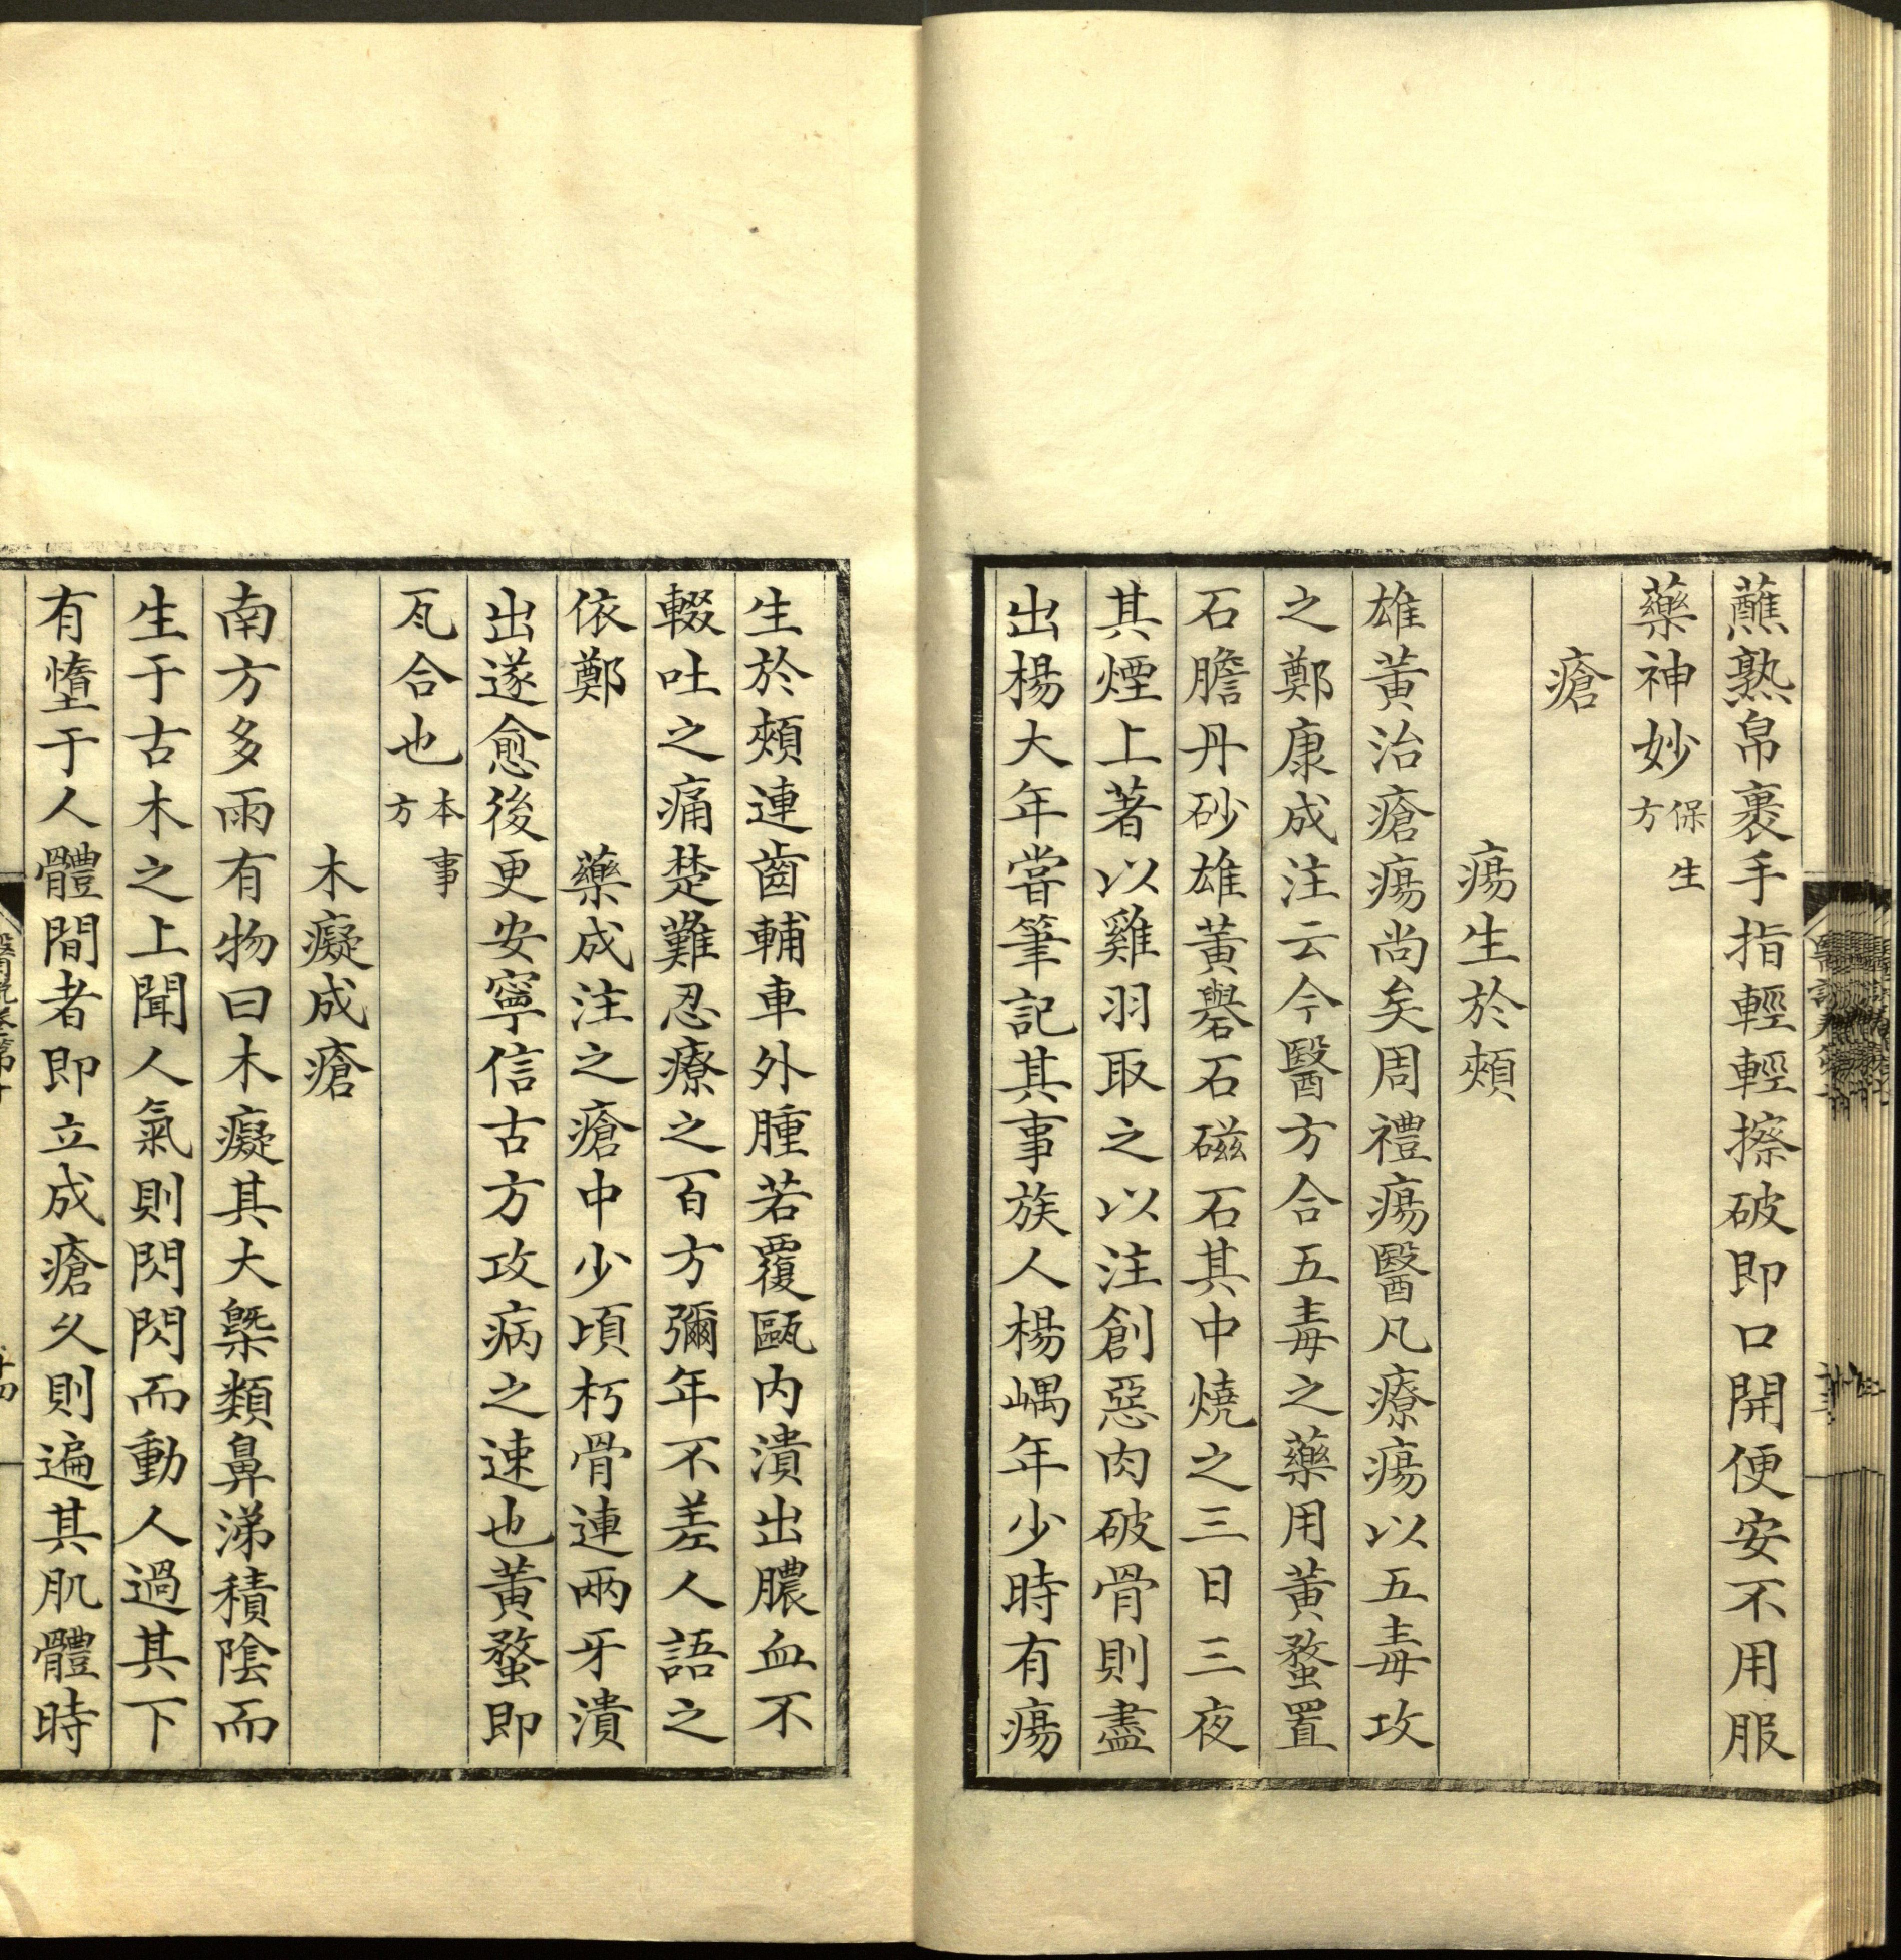 蘸熟帛裹手指輕輕擦破即口開便安不用服
藥神妙保生方
瘡
瘍生於頰
雄黃治瘡瘍尚矣周禮瘍醫凡療瘍以五毒攻
之鄭康成注云今醫方合五毒之藥用黃蝥置
石膽丹砂雄黃礜石磁石其中燒之三日三夜
其煙上著以雞羽取之以注創惡肉破骨則盡
出楊大年嘗筆記其事族人楊嵎年少時有瘍
生於頰連齒輔車外腫若覆甌內潰出膿血不
輟吐之痛楚難忍療之百方彌年不差人語之
依鄭 藥成注之瘡中少頃朽骨連兩牙潰
出遂愈後更安寧信古方攻病之速也黃蝥即
瓦合也本事方
木癡成瘡
南方多雨有物曰木癡其大槩類鼻涕積陰而
生于古木之上聞人氣則閃閃而動人過其下
有墮于人體間者即立成瘡久則遍其肌體時
醫說卷第十
十四